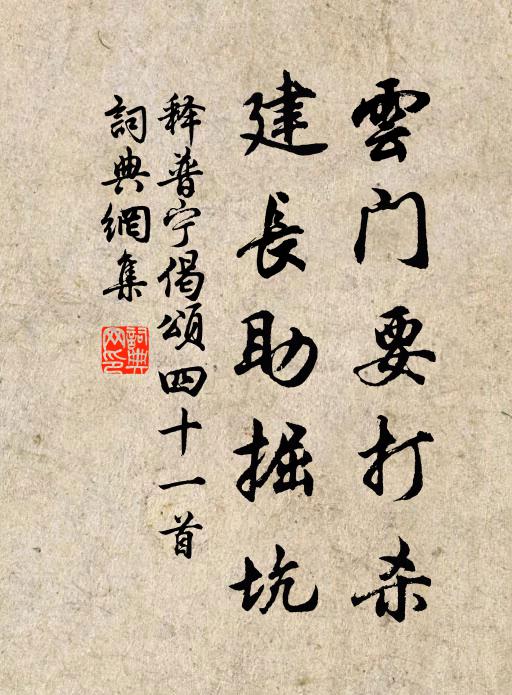 雲门要打杀
建長助掘坑
释普宁偈頌四十一首
詞典網集
詞典網印